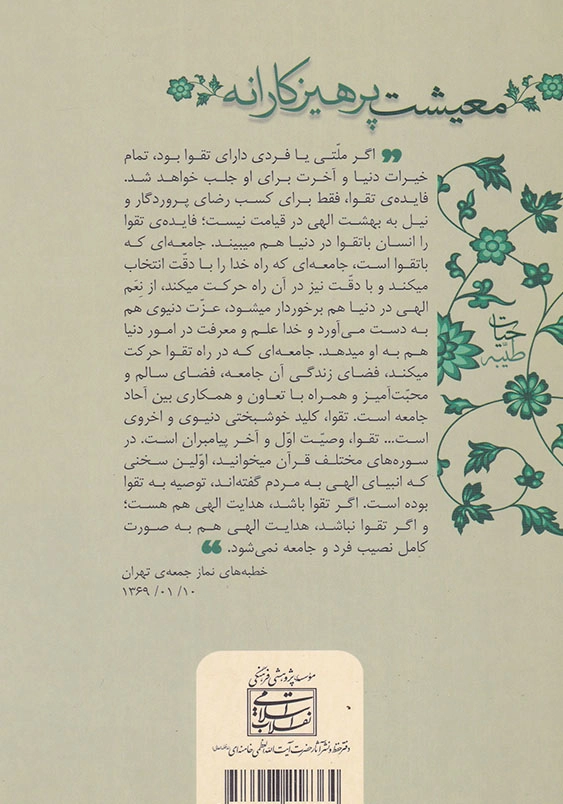 معیشت پرهیزکارانه
اگر ملّتی یا فردی دارای تقوا بود، تمام
خیرات دنیا و آخرت برای او جلب خواهد شد.
فایده‌ی تقوا، فقط برای کسب رضای پروردگار و
نیل به بهشت الهی در قیامت نیست؛ فایده‌ی تقوا
را انسان باتقوا در دنیا هم میبیند. جامعه‌ای که
باتقوا است، جامعه‌ای که راه خدا را با دقّت انتخاب
میکند و با دقّت نیز در آن راه حرکت میکند، از نِعَم
الهی در دنیا هم برخوردار میشود، عزّت دنیوی هم
به دست می‌آورد و خدا علم و معرفت در امور دنیا
هم به او میدهد. جامعه‌ای که در راه تقوا حرکت
میکند، فضای زندگی آن جامعه، فضای سالم و
محبّت‌آمیز و همراه با تعاون و همکاری بین آحاد
جامعه است. تقوا، کلید خوشبختی دنیوی و اخروی
است... تقوا، وصیّت اوّل و آخر پیامبران است. در
سوره‌های مختلف قرآن میخوانید، اوّلین سخنی
که انبیای الهی به مردم گفته‌اند، توصیه به تقوا
بوده است. اگر تقوا باشد، هدایت الهی هم هست؛
و اگر تقوا نباشد، هدایت الهی هم به صورت
کامل نصیب فرد و جامعه نمی‌شود.
خطبه‌های نماز جمعه‌ی تهران
۱۳۶۹ /۰۱ /۱۰
حیات
طیّبه
مؤسسه پژوهشی فرهنگی
انقلاب اسلامی
دفتر حفظ و نشر آثار حضرت آیت‌الله العظمی خامنه‌ای